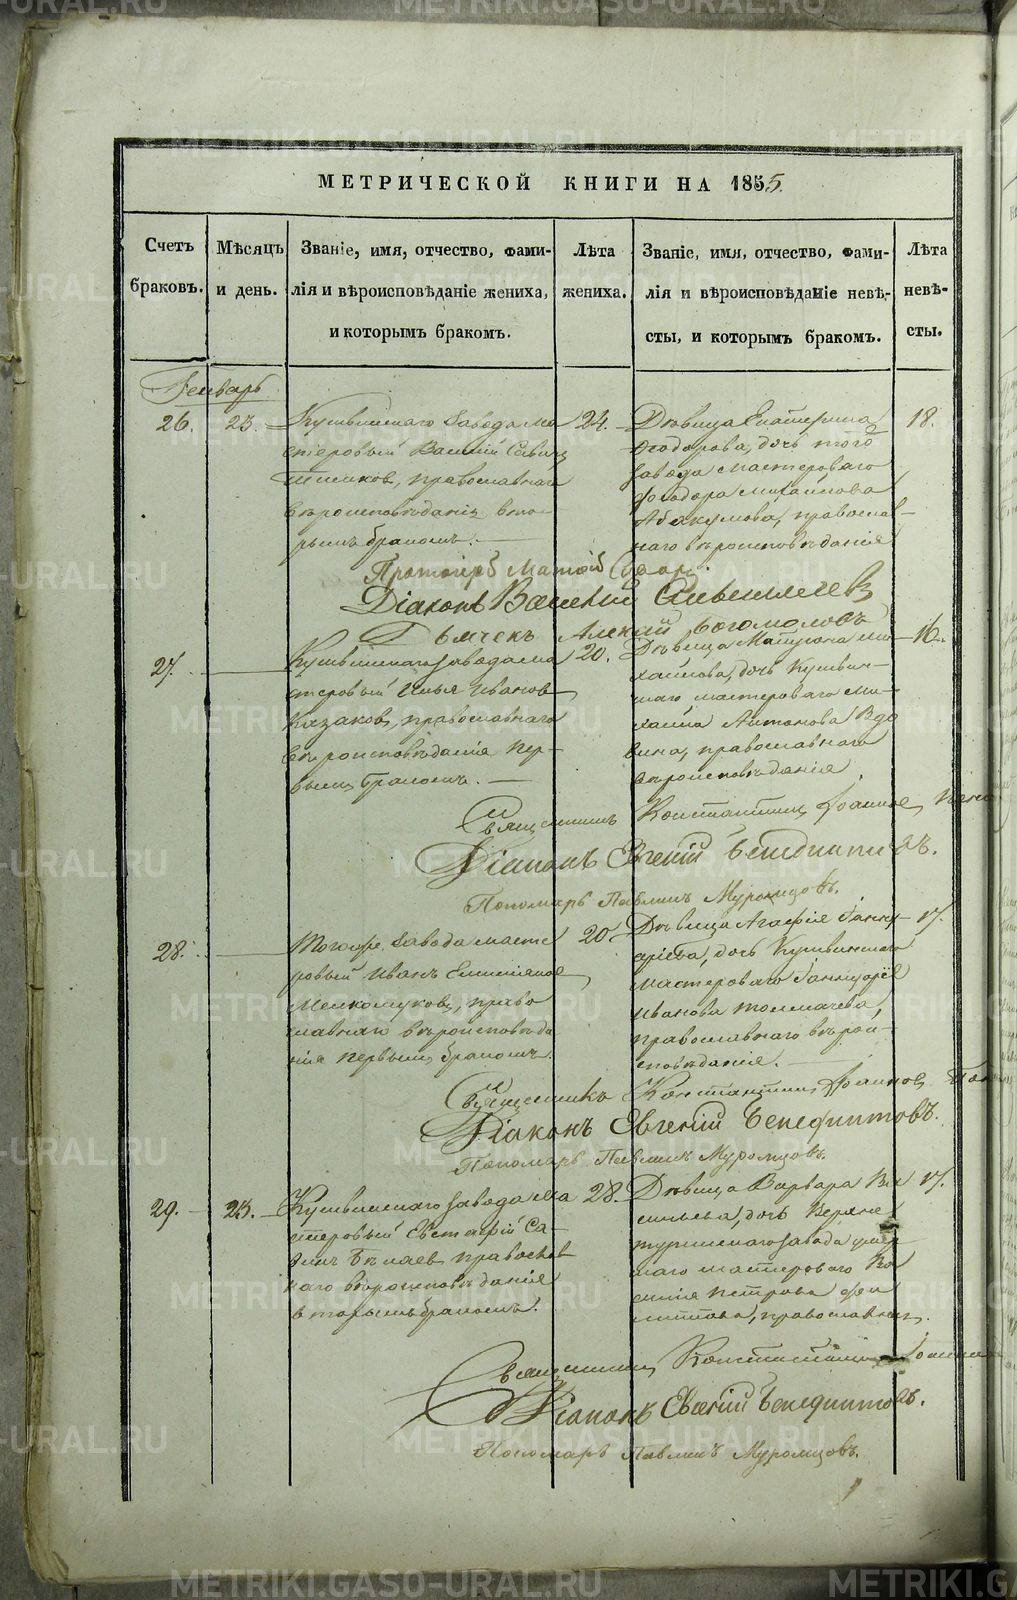 МЕТРИЧЕСКОЙ КНИГИ НА 1855.
Счетъ браковъ.
Мѣсяцъ и день.
Званіе, имя, отчество, фами-
лія и вѣроисповѣданіе жениха,
и которымъ бракомъ.
Лѣта жениха.
Званіе, имя, отчество, фами-
лія и вѣроисповѣданіе невѣ-
сты, и которымъ бракомъ.
Лѣта невѣ-
сты.
Генварь
26.
23.
Кушвинскаго завода ма
стеровый Василій Савин
православнаго
вѣроисповѣданія вто-
рымъ бракомъ.
24.
Дѣвица Екатерина
Ѳеодорова, дочь того
завода мастероваго
Ѳеодора Михайлова
Абакумова, православ-
наго вѣроисповѣданія
18.
Протоіерей
Діаконъ Василій
Дьячекъ Алексій Богомоловъ
27.
Кушвинскаго завода ма
стеровый Илья Иванов
Казаков, православнаго
вѣроисповѣданія пер-
вымъ бракомъ.
20.
Дѣвица Матрона Ми-
хайлова, дочь Кушвин-
скаго мастероваго Ми-
хаила Антонова Вдо
вина, православнаго
вѣроисповѣданія.
16.
Священникъ Константинъ
Діаконъ Евгеній Бенедиктовъ.
Пономарь Павлинъ Муромцовъ.
28.
Тогоже завода масте
ровый Иванъ
право
славнаго вѣроисповѣда
нія первымъ бракомъ.
20
Дѣвица Агафія
дочь Кушвинскаго
мастероваго
Иванова Толмачева,
православнаго вѣроис-
повѣданія.
17.
Священникъ Константинъ
Діаконъ Евгеній Бенедиктовъ.
Пономарь Павлинъ Муромцовъ.
29.
25.
Кушвинскаго завода ма
стеровый Евстафій Са-
православ
наго вѣроисповѣданія
вторымъ бракомъ.
28.
Дѣвица Варвара Ва
сильева, дочь Верхне
туринскаго завода
мастероваго Ва
силія Петрова
православнаго.
17.
Священникъ Константинъ
Діаконъ Евгеній Бенедиктовъ.
Пономарь Павлинъ Муромцовъ.
METRIKI.GASO-URAL.RU